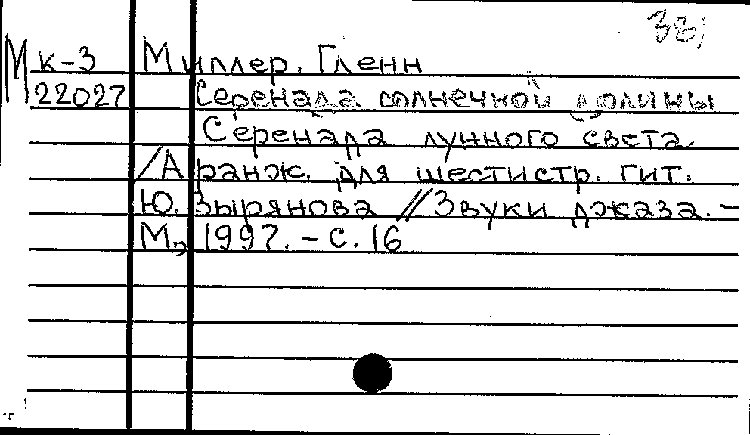 38)
М к-3 Миллер. Гленн
22027 Серенада солнечной долины
Серенада лунного света.
/Аранж. для шестистр. гит.
Ю. Зырянова // Звуки джаза. –
М., 1997. – с. 16